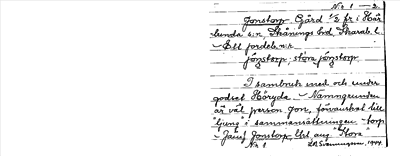 No 1 – 2.
Jonstorp. Gård 1/2 fr i Här
lunda s:n, Skånings hd, Skarab. l.
– Ett jordebr. n:r
jǫnstorp; stora jǫnstorp.
I sambruk med och under
godset Höryda. – Namngrunden
är väl person Jon, förvanskat till
"ljung" i sammansättningen -torp
– Jämf. Jonstorp, Utt. aug "Stora"
No 1
1904.